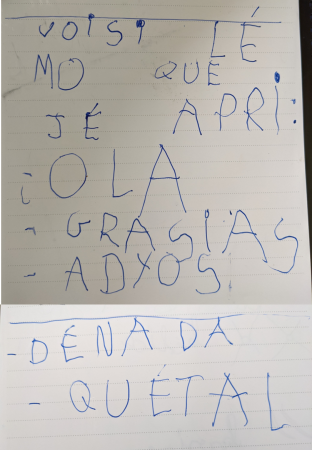 VOISI LÉ
MO QUE
JÉ APRI:
¡OLA
- GRASIAS
- ADYOS
- DÉNADA
- QUÉTAL